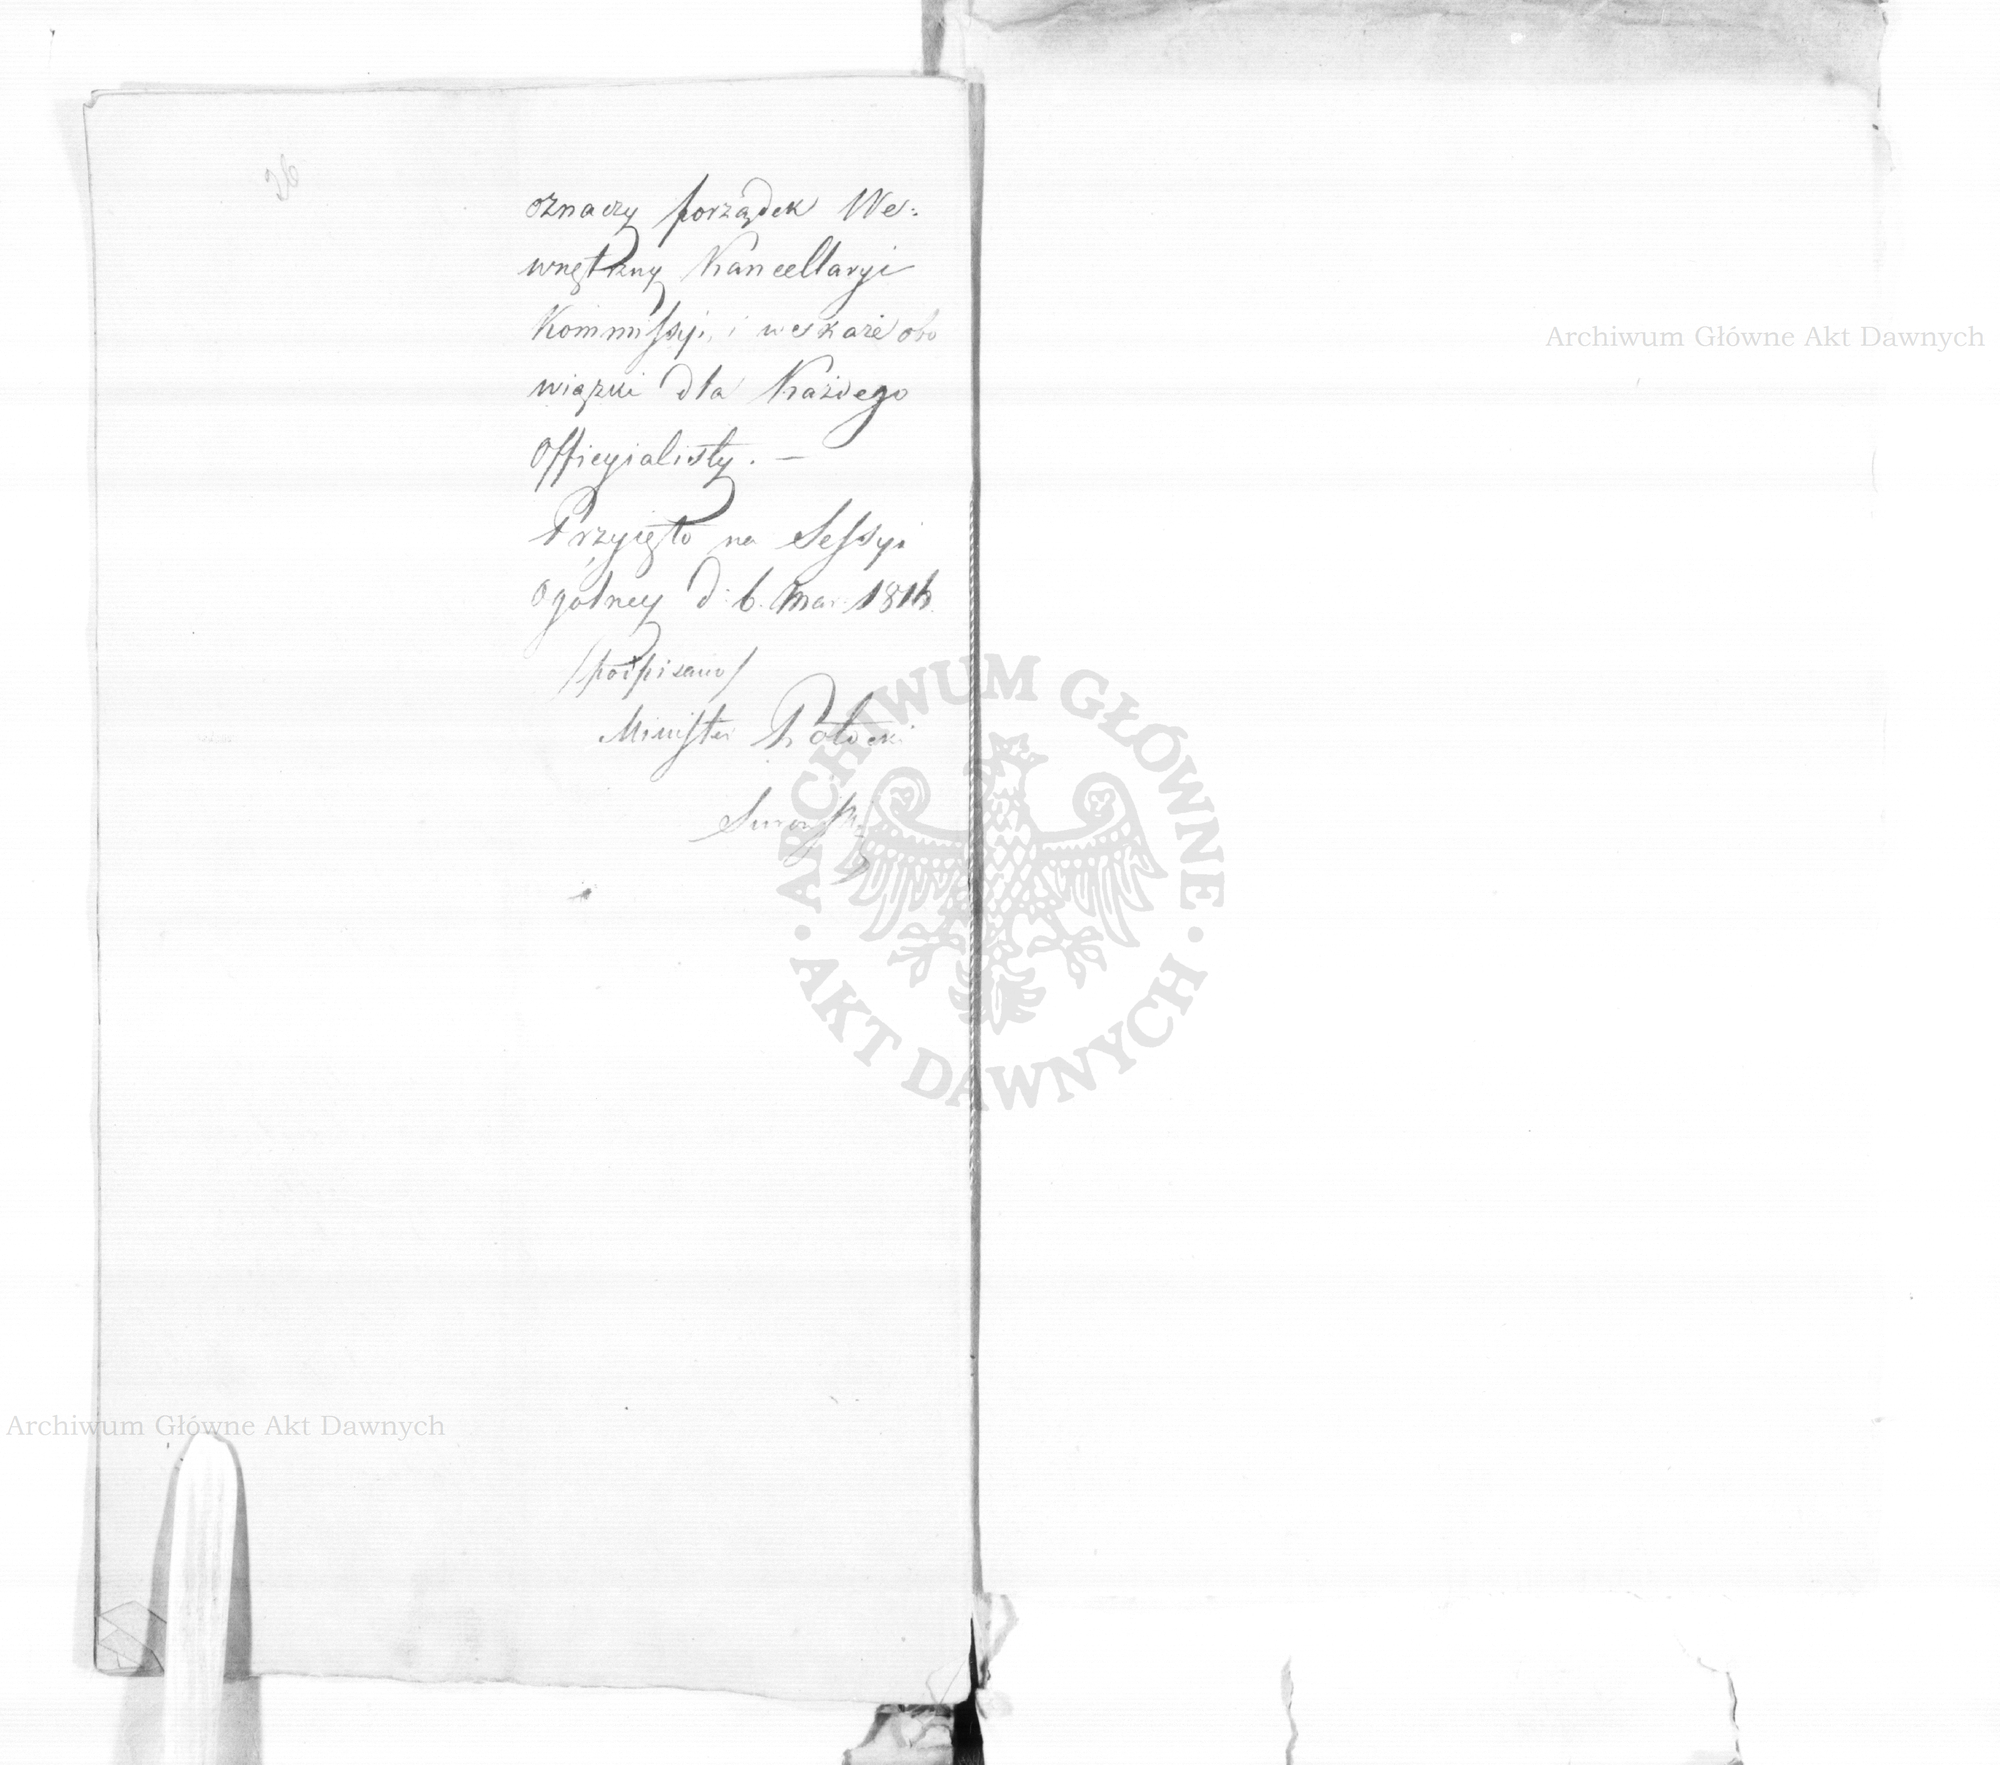 26
oznaczy porządek We-
wnętrzny Kancellaryi
Kommissyi, i wskaże obo
wiązki dla Każdego
Officyialisty. —
Przyięto na Sessyi
Ogolney d: 6. Mar: 1816.
/podpisano/
Minister Potocki
Surowski
Archiwum Główne Akt Dawnych
ARCHIWUM GŁÓWNE
AKT DAWNYCH
Archiwum Główne Akt Dawnych